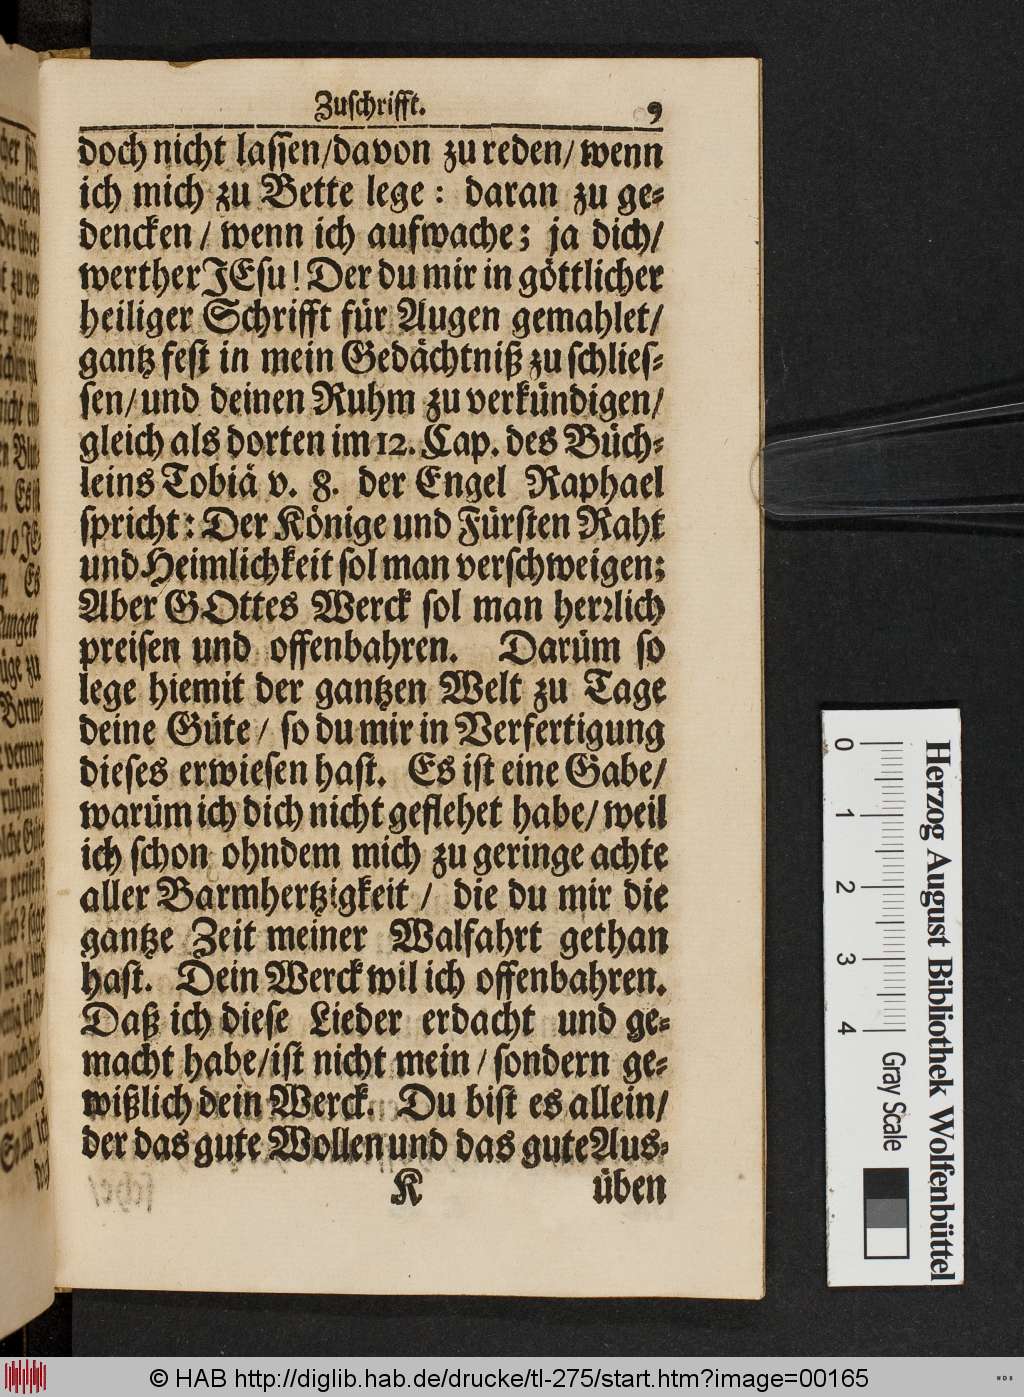 Zuschrifft. 9
doch nicht lassen/davon zu reden/wenn
ich mich zu Bette lege: daran zu ge-
dencken/ wenn ich aufwache; ja dich/
werther JEsu! Der du mir in göttlicher
heiliger Schrifft für Augen gemahlet/
gantz fest in mein Gedächtniß zu schlies-
sen/und deinen Ruhm zu verkündigen/
gleich als dorten im 12. Cap. des Büch-
leins Tobiä v. 8. der Engel Raphael
spricht: Der Könige und Fürsten Raht
und Heimlichkeit sol man verschweigen;
Aber GOttes Werck sol man herrlich
preisen und offenbahren. Darüm so
lege hiemit der gantzen Welt zu Tage
deine Güte/ so du mir in Verfertigung
dieses erwiesen hast. Es ist eine Gabe/
warüm ich dich nicht geflehet habe/weil
ich schon ohndem mich zu geringe achte
aller Barmhertzigkeit/ die du mir die
gantze Zeit meiner Walfahrt gethan
hast. Dein Werck wil ich offenbahren.
Daß ich diese Lieder erdacht und ge-
macht habe/ist nicht mein/sondern ge-
wißlich dein Werck. Du bist es allein/
der das gute Wollen und das gute Aus-
K üben
Herzog August Bibliothek Wolfenbüttel
0 1 2 3 4 Gray Scale
© HAB http://diglib.hab.de/drucke/tl-275/start.htm?image=00165